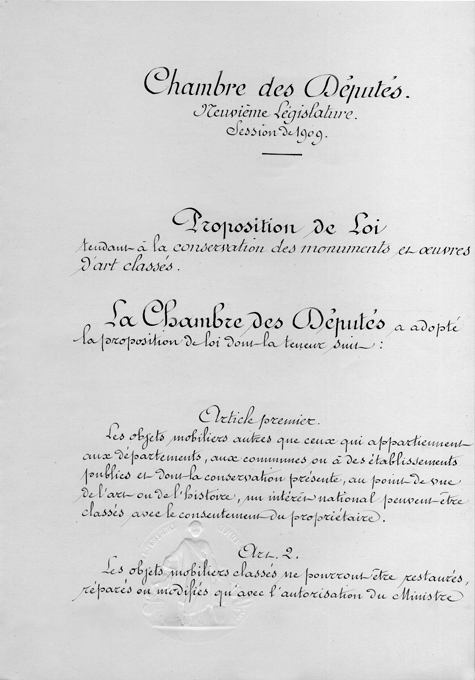 Chambre des Députés.
Neuvième Législature.
Session de 1909.
Proposition de Loi
tendant à la conservation des monuments et œuvres
d'art classés.
La Chambre des Députés a adopté
la proposition de loi dont la teneur suit :
Article premier.
Les objets mobiliers autres que ceux qui appartiennent
aux départements, aux communes ou à des établissements
publics et dont la conservation présente, au point de vue
de l'art ou de l'histoire, un intérêt national peuvent être
classés avec le consentement du propriétaire.
Art. 2.
Les objets mobiliers classés ne pourront être restaurés,
réparés ou modifiés qu'avec l'autorisation du Ministre